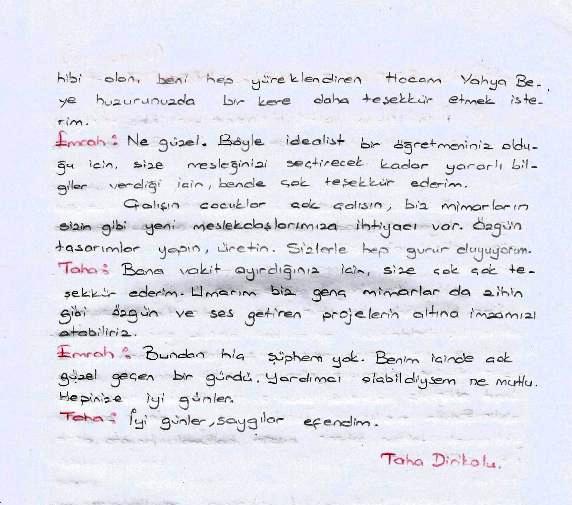 hibi olan, beni hep yüreklendiren Hocam Yahya Be-
ye huzurunuzda bir kere daha teşekkür etmek iste-
rim.
Emrah: Ne güzel. Böyle idealist bir öğretmeniniz oldu-
ğu için, size mesleğinizi seçtirecek kadar yararlı bil-
giler verdiği için, bende çok teşekkür ederim.
Çalışın çocuklar çok çalışın, biz mimarların
sizin gibi yeni meslekdaşlarımıza ihtiyacı var. Özgün
tasarımlar yapın, üretin. Sizlerle hep gurur duyuyorum.
Taha: Bana vakit ayırdığınız için, size çok çok te-
şekkür ederim. Umarım biz genç mimarlar da sihin
gibi özgün ve ses getiren projelerin altına imzamızı
atabiliriz.
Emrah: Bundan hiç şüphem yok. Benim içinde çok
güzel geçen bir gündü. Yardımcı olabildiysem ne mutlu.
Hepinize iyi günler.
Taha: İyi günler, saygılar efendim.
Taha Dirikolu.